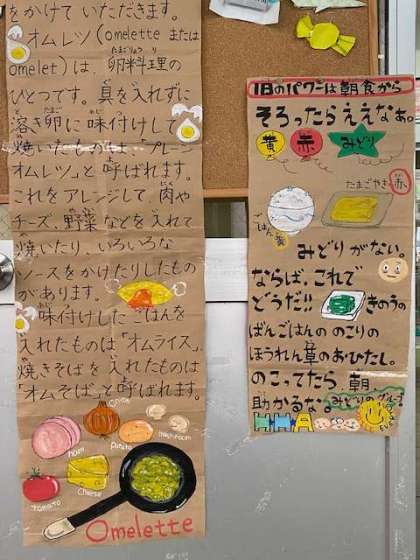 をかけて いただきます。
オムレツ(omelette または
omelet)は、卵料理の
ひとつです。具を入れずに
溶き卵に味付けして
焼いたものは、「プレーン
オムレツ」と呼ばれます。
これをアレンジして、肉や
チーズ、野菜などを入れて
焼いたり、いろいろな
ソースをかけたりしたもの
があります。
味付けしたごはんを
入れたものは「オムライス」、
焼きそばを入れたものは
「オムそば」と呼ばれます。
onion
ham
potato
mushroom
cheese
tomato
Omelette
1日のパワーは朝食から
そろったらええなぁ。
黄
赤
みどり
たまごやき赤
ごはん黄
みどりがない。
ならば、これで
どうだ!!
きのうの
ばんごはんの のこりの
ほうれん草のおひたし。
のこってたら、朝
助かるなな
みどりのグループ